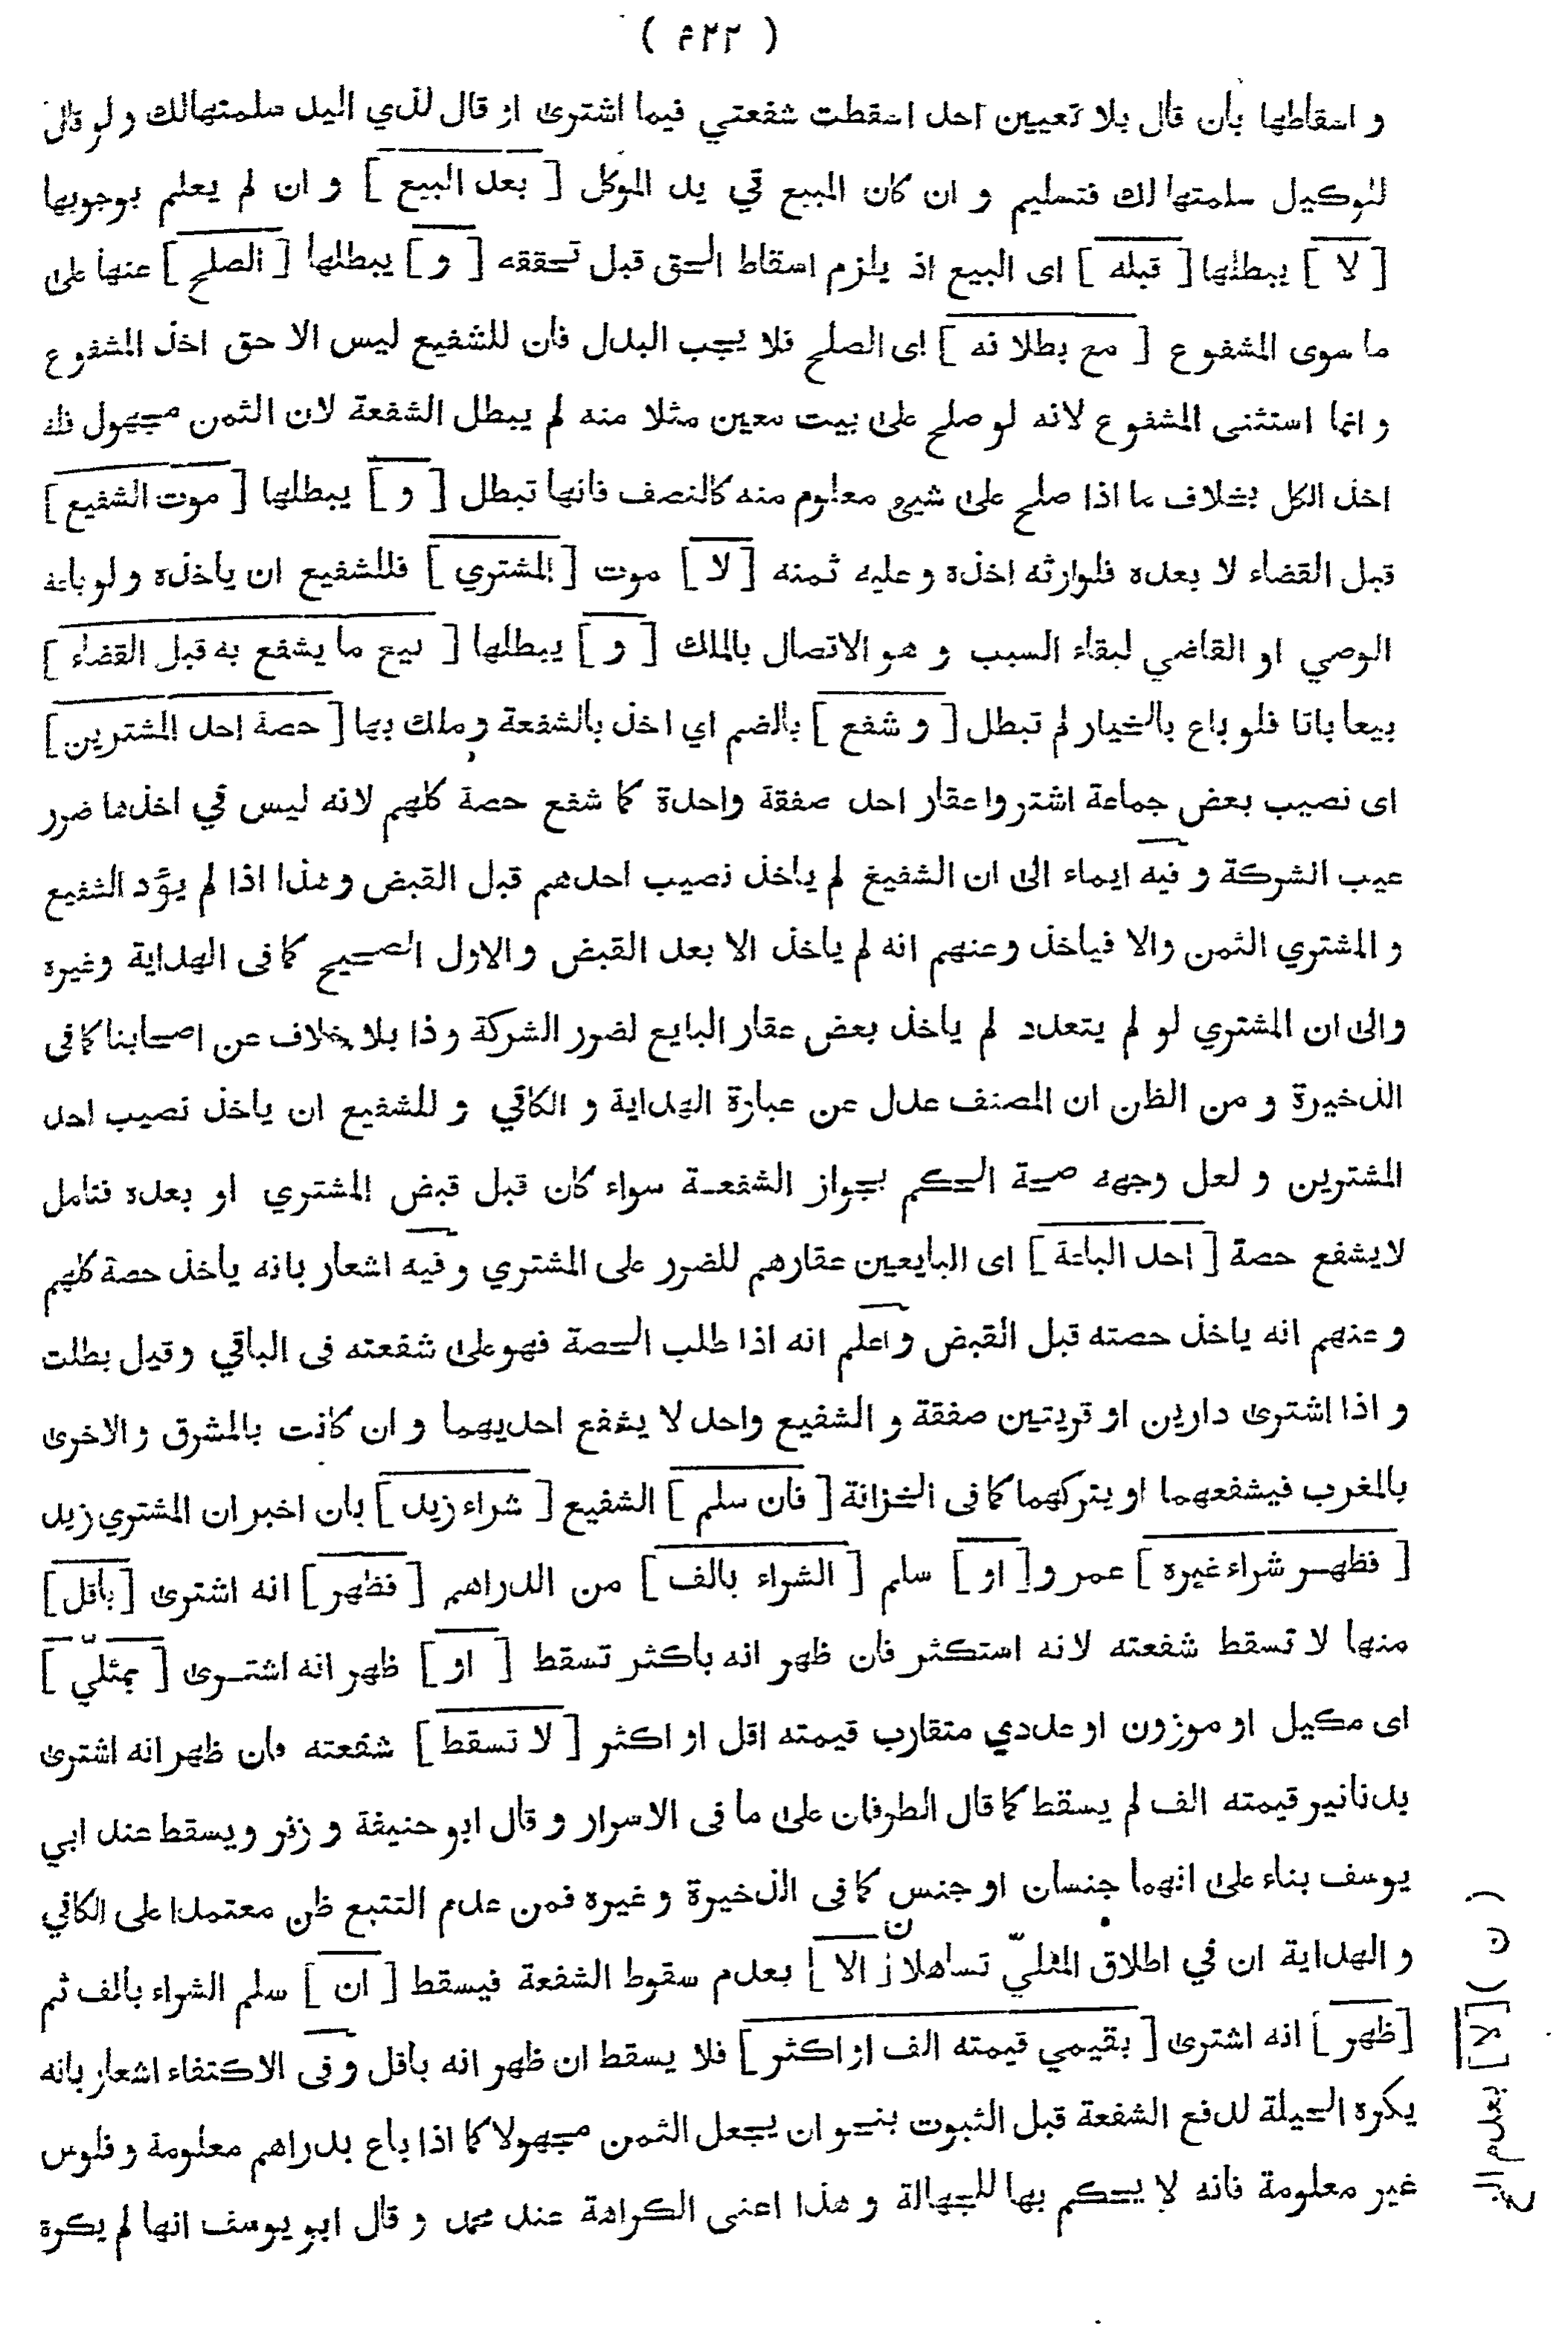 ( ٤٢٢ )
و اسقاطها بان قال بلا تعيين احد اسقطت شفعتي فيما اشترى از قال لذي اليد سلمتهالك و لو قال
للوكيل سلمتها لك فتسليم و ان كان المبيع في يد الموكل [ بعد البيع ] و ان لم يعلم بوجوبها
[ لا ] يبطلها [ قبله ] اى البيع اذ يلزم اسقاط الحق قبل تحققه [ و ] يبطلها [ الصلح ] عنها على
ما سوى المشفوع [ مع بطلانه ] اى الصلح فلا يجب البدل فان للشفيع ليس الا حق اخذ المشفوع
و انما استثنى المشفوع لانه لو صلح على بيت معين مثلا منه لم يبطل الشفعة لان الثمن مجهول فله
اخذ الكل بخلاف ما اذا صلح على شيىء معلوم منه كالنصف فانها تبطل [ و ] يبطلها [ موت الشفيع ]
قبل القضاء لا بعده فلوارثه اخذه و عليه ثمنه [ لا ] موت [ المشتري ] فللشفيع ان ياخذه و لو باعه
الوصي او القاضي لبقاء السبب و هو الاتصال بالملك [ و ] يبطلها [ بيع ما يشفع به قبل القضاء ]
بيعا باتا فلو باع بالخيار لم تبطل [ و شفع ] بالضم اي اخذ بالشفعة و ملك بها [ حصة احد المشترين ]
اى نصيب بعض جماعة اشتروا عقار احد صفقة واحدة كما شفع حصة كلهم لانه ليس في اخذها ضرر
عيب الشركة و فيه ايماء الى ان الشفيع لم ياخذ نصيب احدهم قبل القبض و هذا اذا لم يؤد الشفيع
و المشتري الثمن والا فياخذ و عنهم انه لم ياخذ الا بعد القبض و الاول الصحيح كما فى الهداية وغيره
والى ان المشتري لو لم يتعدد لم ياخذ بعض عقار البايع لضرر الشركة و ذا بلا خلاف عن اصحابنا كما فى
الذخيرة و من الظن ان المصنف عدل عن عبارة الهداية و الكافي و للشفيع ان ياخذ نصيب احد
المشترين و لعل وجهه صحة الحكم بجواز الشفعة سواء كان قبل قبض المشتري او بعده فتامل
لايشفع حصة [ احد الباعة ] اى البايعين عقارهم للضرر على المشتري و فيه اشعار بانه ياخذ حصة كلهم
و عنهم انه ياخذ حصته قبل القبض و اعلم انه اذا طلب الحصة فهو على شفعته فى الباقي و قيل بطلت
و اذا اشترى دارين او قريتين صفقة و الشفيع واحد لا يشفع احديهما و ان كانت بالمشرق و الاخرى
بالمغرب فيشفعهما او يتركهما كما فى الخزانة [ فان سلم ] الشفيع [ شراء زيد ] بان اخبر ان المشتري زيد
[ فظهر شراء غيره ] عمرو [ او ] سلم [ الشراء بالف ] من الدراهم [ فظهر ] انه اشترى [ باقل ]
منها لا تسقط شفعته لانه استكثر فان ظهر انه باكثر تسقط [ او ] ظهر انه اشترى [ بمثليّ ]
اى مكيل او موزون او عددي متقارب قيمته اقل او اكثر [ لا تسقط ] شفعته فان ظهر انه اشترى
بدنانير قيمته الف لم يسقط كما قال الطرفان على ما فى الاسرار و قال ابو حنيفة و زفر و يسقط عند ابي
يوسف بناء على انهما جنسان او جنس كما فى الذخيرة و غيره فمن عدم التتبع ظن معتمدا على الكافي
و الهداية ان في اطلاق المثليّ تساهلا ن [ الا ] بعدم سقوط الشفعة فيسقط [ ان ] سلم الشراء بالف ثم
[ ظهر ] انه اشترى [ بقيمي قيمته الف او اكثر ] فلا يسقط ان ظهر انه باقل و فى الاكتفاء اشعار بانه
يكره الحيلة لدفع الشفعة قبل الثبوت بنحو ان يجعل الثمن مجهولا كما اذا باع بدراهم معلومة و فلوس
غير معلومة فانه لا يحكم بها للجهالة و هذا اعنى الكراهة عند محمد و قال ابو يوسف انها لم يكره
( ن ) [ لا ] بعدم الخ